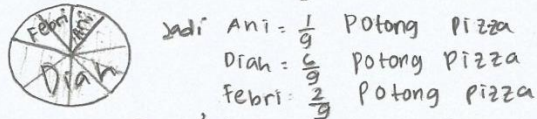 Febri Ani
Diah
Jadi Ani = 1/9 Potong Pizza
Diah = 6/9 Potong Pizza
Febri = 2/9 Potong Pizza